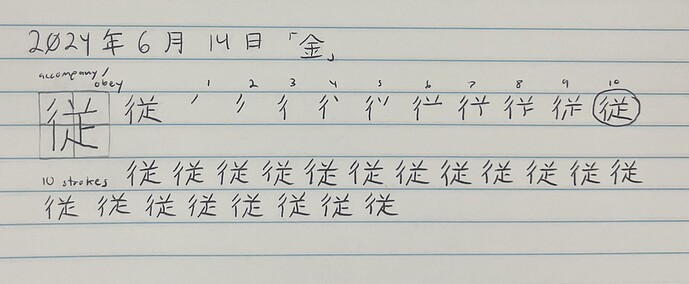 2024年6月14日「金」
accompany/
obey
1 2 3 4 5 6 7 8 9 10
従 従 彳 従
10 strokes 従 従 従 従 従 従 従 従 従 従 従 従
従 従 従 従 従 従 従 従